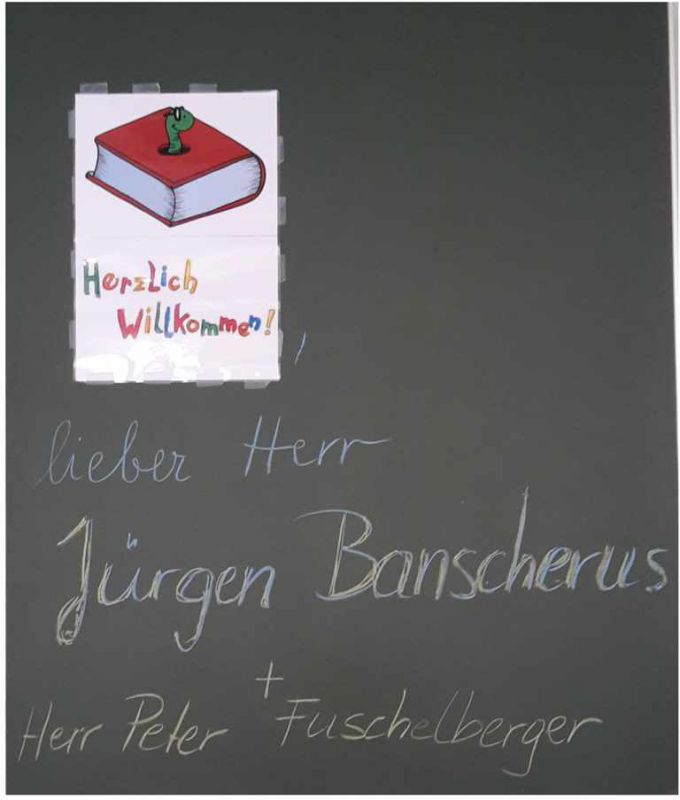 Herzlich
Willkommen!,
lieber Herr
Jürgen Banscherus
+
Herr Peter Fuschelberger